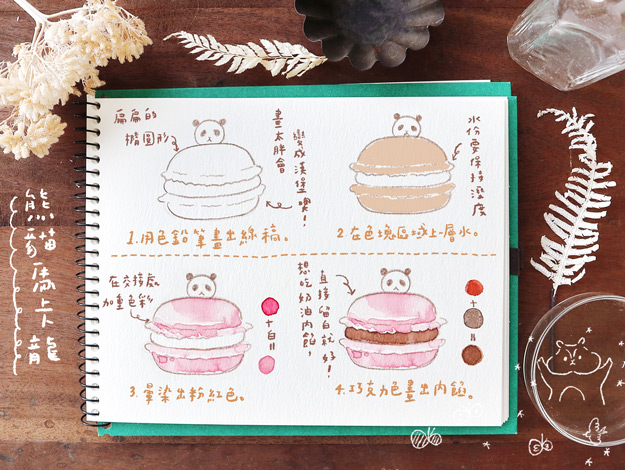 熊貓馬卡龍
扁扁的
橢圓形
畫太胖會
變成漢堡噢!
1.用色鉛筆畫出線稿。
水份要保持溼度
2.在色塊區域上一層水。
在交接處
加重色彩
+白=
3.暈染出粉紅色。
想吃奶油內餡,
直接留白就好!
+
=
4.巧克力色畫出內餡。